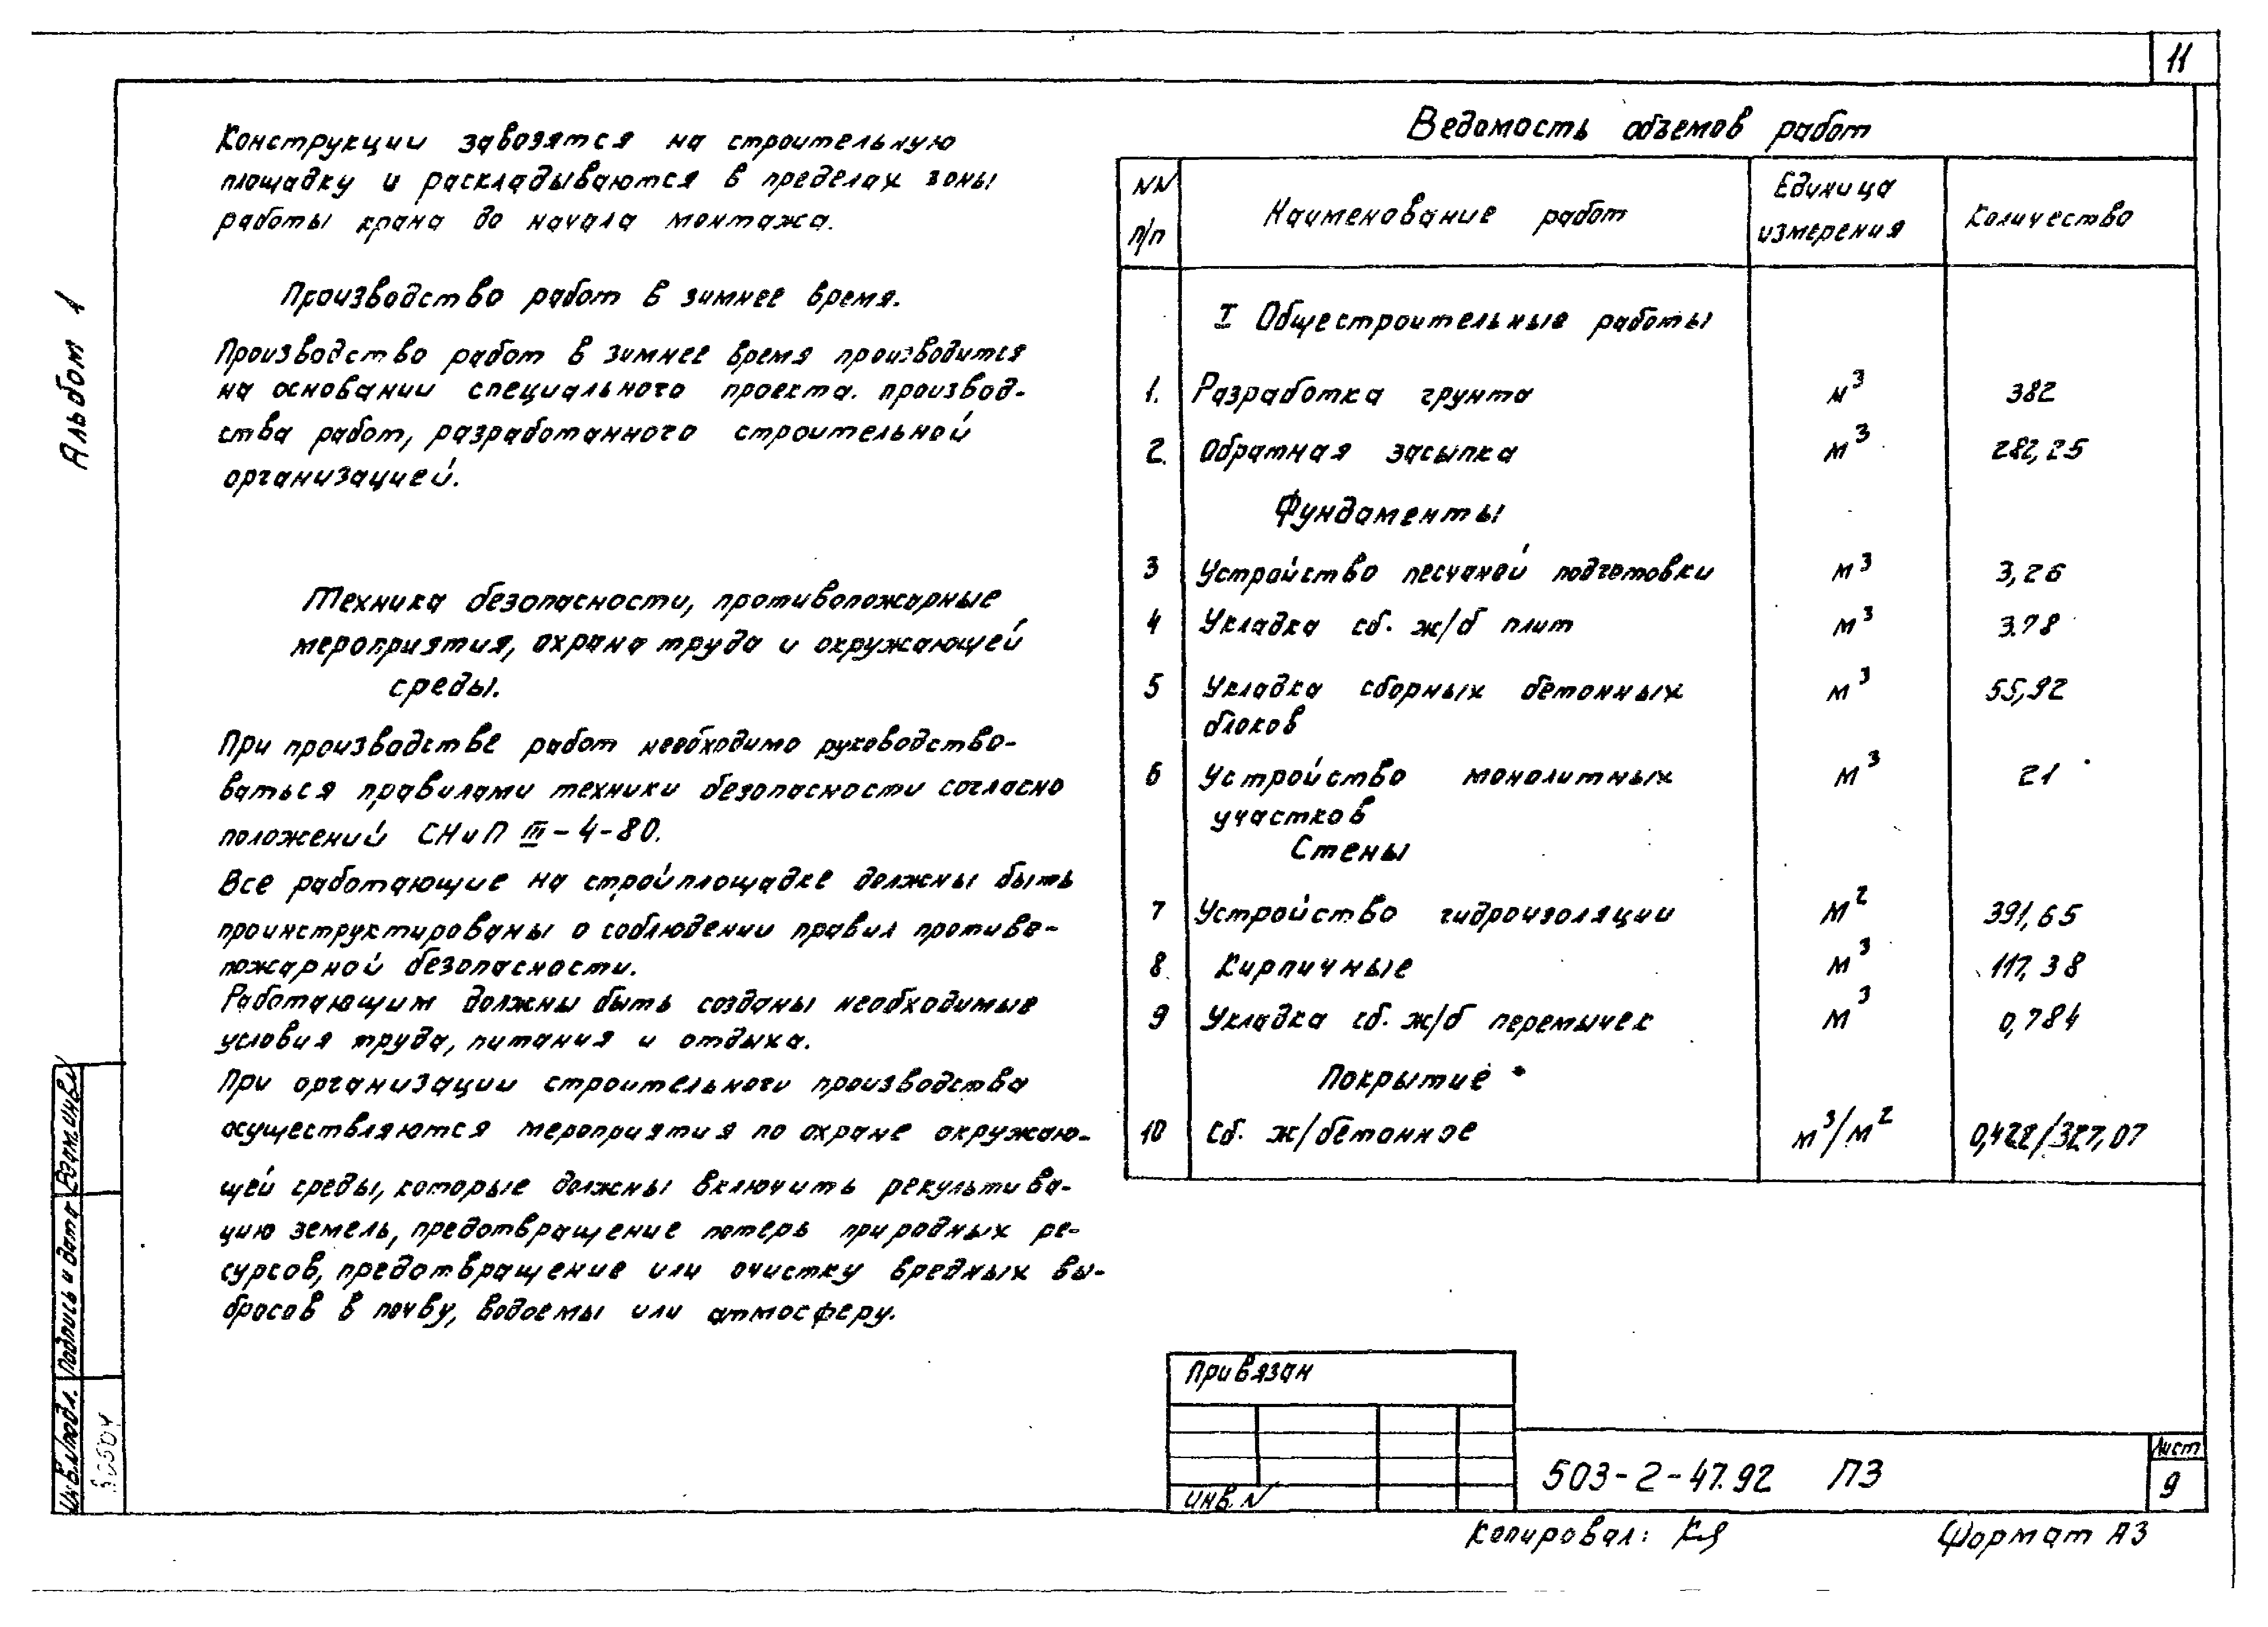 11
Альбом 1
Конструкции завозятся на строительную
площадку и раскладываются в пределах зоны
работы крана до начала монтажа.
Производство работ в зимнее время.
Производство работ в зимнее время производится
на основании специального проекта. производ-
ства работ, разработанного строительной
организацией.
Техника безопасности, противопожарные
мероприятия, охрана труда и окружающей
среды.
При производстве работ необходимо руководство-
ваться правилами техники безопасности согласно
положений СНиП III-4-80.
Все работающие на стройплощадке должны быть
проинструктированы о соблюдении правил противо-
пожарной безопасности.
Работающим должны быть созданы необходимые
условия труда, питания и отдыха.
При организации строительного производства
осуществляются мероприятия по охране окружаю-
щей среды, которые должны включить рекультива-
цию земель, предотвращение потерь природных ре-
сурсов, предотвращение или очистку вредных вы-
бросов в почву, водоемы или атмосферу.
Ведомость объемов работ
NN п/п Наименование работ Единица измерения Количество
I Общестроительные работы
1. Разработка грунта м³ 382
2. Обратная засыпка м³ 282,25
Фундаменты
3 Устройство песчаной подготовки м³ 3,26
4 Укладка сб. ж/б плит м³ 3.78
5 Укладка сборных бетонных м³ 55,92
блоков
6 Устройство монолитных м³ 21
участков
Стены
7 Устройство гидроизоляции м² 391,65
8 Кирпичные м³ 117,38
9 Укладка сб. ж/б перемычек м³ 0,784
Покрытие
10 Сб. ж/бетонное м³/м² 0,422/327,07
Привязан
Инв. N
503-2-47.92 ПЗ
Лист
9
Инв. N подл. Подпись и дата Взам инв. N
Копировал: Формат А3